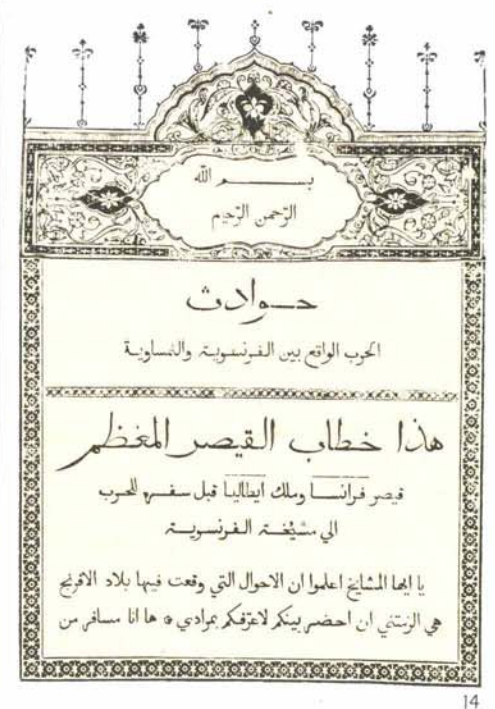 بسم الله
الرّحمن الرّحيم
حوادث
الحرب الواقع بين الفرنسوية والنمساوية
هذا خطاب القيصر المعظم
قيصر فرانسا وملك ايطاليا قبل سفره للحرب
الي مشيخة الفرنسوية
يا ايها المشايخ اعلموا ان الاحوال التي وقعت فيها بلاد الافرنج
هي الزمتني ان احضر بينكم لاعرّفكم بمرادي ۞ ها انا مسافر من
14